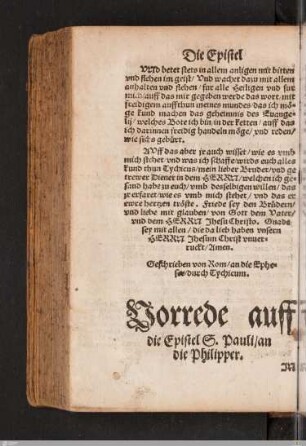 Die Epistel
VNd betet stets in allem anligen mit bitten
vnd flehen im geist / Vnd wachet dazu mit allem
anhalten vnd flehen / fur alle Heiligen vnd fur
mich / auff das mir gegeben werde das wort / mit
freidigem auffthun meines mundes / das ich mö-
ge kund machen das geheimnis des Euange-
lij / welches Bote ich bin in der Ketten / auff das
ich darinnen freidig handeln möge / vnd reden /
wie sichs gebürt.
AVff das aber jr auch wisset / wie es vmb
mich stehet vnd was ich schaffe / wirds euch alles
kund thun Tychicus / mein lieber Bruder / vnd ge
trewer Diener in dem HERRN / welchen ich ge-
sand habe zu euch / vmb desselbigen willen / das
jr erfaret / wie es vmb mich stehet / vnd das er
ewre hertzen tröste. Friede sey den Brüdern /
vnd liebe mit glauben / von Gott dem Vater /
vnd dem HERRN Jhesu Christo. Gnade
sey mit allen / die da lieb haben vnsern
HERRN Jhesum Christ vnuer-
ruckt / Amen.
Geschrieben von Rom / an die Ephe-
ser / durch Tychicum.
Vorrede auff
die Epistel S. Pauli / an
die Philipper.